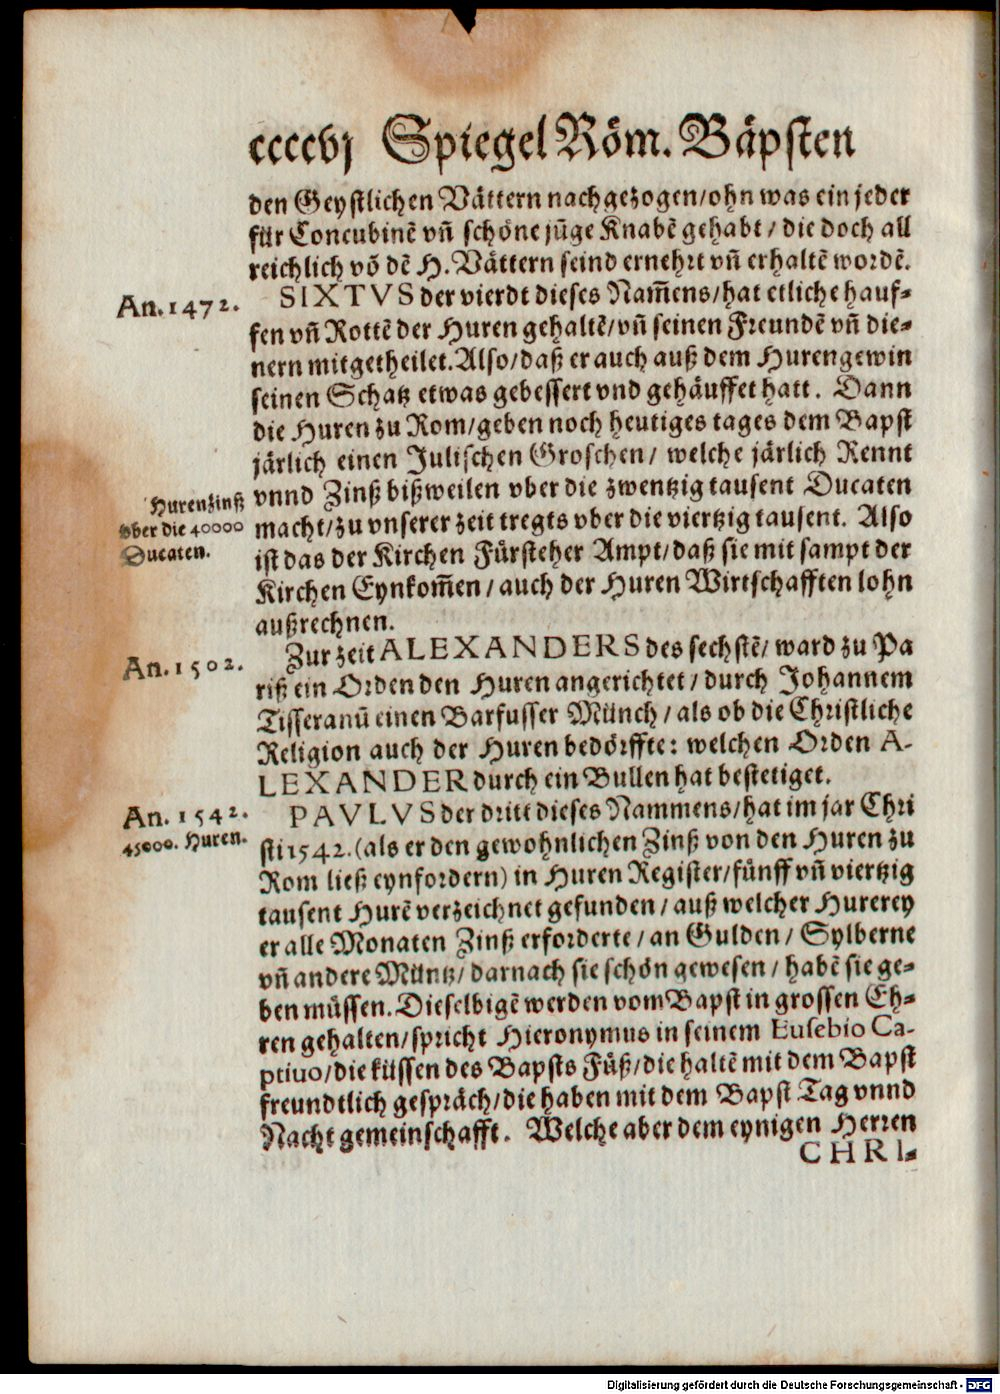 ccccvj Spiegel Röm. Bäpsten
den Geystlichen Vättern nachgezogen/ohn was ein jeder
für Concubinē vñ schöne jūge Knabē gehabt / die doch all
reichlich vō dē H. Vättern seind ernehrt vñ erhaltē wordē.
An. 1472.
SIXTVS der vierdt dieses Nam̄ens/hat etliche hauf-
fen vñ Rottē der Huren gehaltē/vñ seinen Freundē vñ die-
nern mitgetheilet. Also/daß er auch auß dem Hurengewin
seinen Schatz etwas gebessert vnd gehäuffet hatt. Dann
die Huren zu Rom/geben noch heutiges tages dem Bapst
järlich einen Julischen Groschen/ welche järlich Rennt
Hurenzinß
vber die 40000
Ducaten.
vnnd Zinß bißweilen vber die zwentzig tausent Ducaten
macht/zu vnserer zeit tregts vber die viertzig tausent. Also
ist das der Kirchen Fürsteher Ampt/daß sie mit sampt der
Kirchen Eynkom̄en / auch der Huren Wirtschafften lohn
außrechnen.
An. 1502.
Zur zeit ALEXANDERS des sechstē/ ward zu Pa
riß ein Orden den Huren angerichtet / durch Johannem
Tisseranū einen Barfusser Münch / als ob die Christliche
Religion auch der Huren bedörffte: welchen Orden A-
LEXANDER durch ein Bullen hat bestetiget.
An. 1542.
45000. Huren.
PAVLVS der dritt dieses Nammens/hat im jar Chri
sti 1542. (als er den gewohnlichen Zinß von den Huren zu
Rom ließ eynfordern) in Huren Register/fünff vñ viertzig
tausent Hurē verzeichnet gefunden / auß welcher Hurerey
er alle Monaten Zinß erforderte / an Gulden / Sylberne
vñ andere Müntz/ darnach sie schön gewesen / habē sie ge-
ben müssen. Dieselbigē werden vom Bapst in grossen Eh-
ren gehalten/spricht Hieronymus in seinem Eusebio Ca-
ptiuo/die küssen des Bapsts Füß/die haltē mit dem Bapst
freundtlich gespräch/die haben mit dem Bapst Tag vnnd
Nacht gemeinschafft. Welche aber dem eynigen Herren
CHRI-
Digitalisierung gefördert durch die Deutsche Forschungsgemeinschaft - DFG